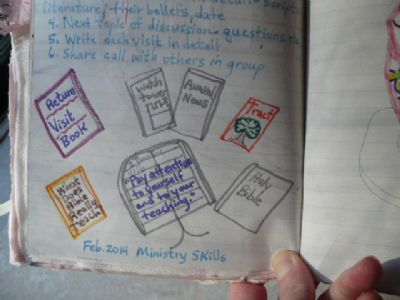 literature, their beliefs, date
4. Next topic of discussion - questions etc
5. Write each visit in detail
6. Share call with others in group
Return
Visit
Book
Watch
tower
Awake!
Nous
Tract
What
Does
Bible
Really
Teach
"Pay attention
to yourself
and to your
teaching."
Holy
Bible
Feb. 2014 Ministry Skills